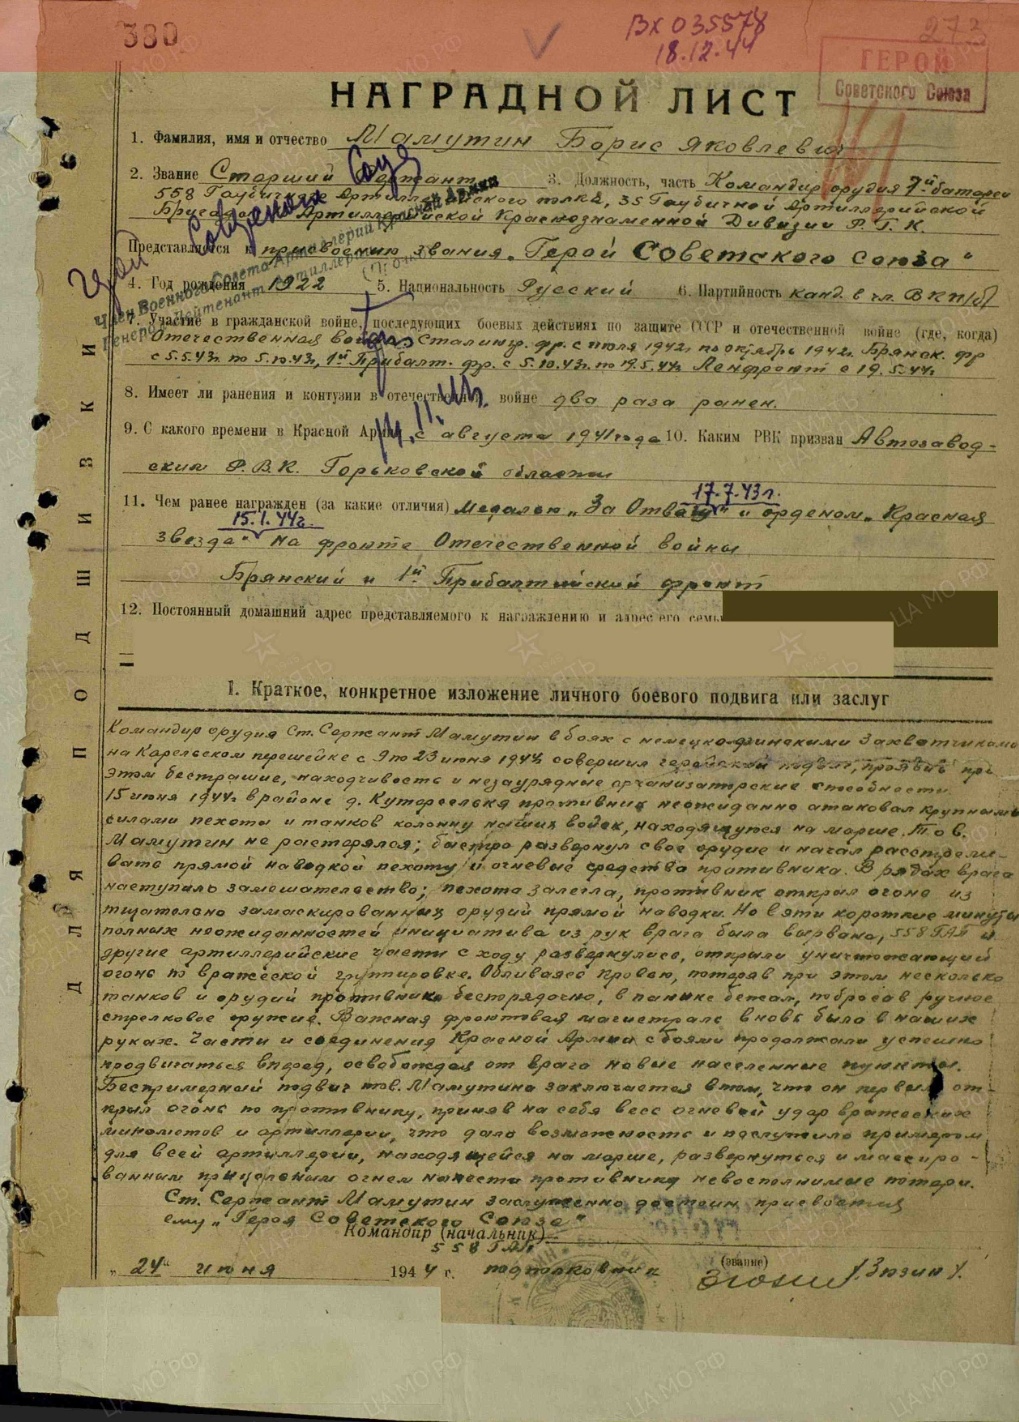 380
ВХ 035578
18.12.44
273
ГЕРОЙ
Советского Союза
НАГРАДНОЙ ЛИСТ
1. Фамилия, имя и отчество Мамутин Борис Яковлевич
2. Звание Старший Сержант 3. Должность, часть Командир орудия 7й батареи
558 Гаубичного Артиллерийского полка, 35 Гаубичной Артиллерийской
Бригады Артиллерийской Краснознаменной Дивизии Р.Г.К.
Представляется к присвоению звания „Герой Советского Союза"
4. Год рождения 1922 5. Национальность Русский 6. Партийность канд. в чл. ВКП/б/
Герой Советского Союза
Член Военного Совета Артиллерии Красной Армии
Генерал-лейтенант артиллерии
14.11.44.
7. Участие в гражданской войне, последующих боевых действиях по защите СССР и отечественной войне (где, когда)
Отечественная война Сталингр. фр. с июля 1942г по октябрь 1942г. Брянск. фр
с 5.5.43г. по 5.10.43г, 1й Прибалт. фр. с 5.10.43г. по 19.5.44г. Ленфронт с 19.5.44г.
8. Имеет ли ранения и контузии в отечественной войне два раза ранен.
9. С какого времени в Красной Армии с августа 1941 года 10. Каким РВК призван Автозавод-
ским Р.В.К. Горьковской области
17.7.43г.
11. Чем ранее награжден (за какие отличия) медалью „За Отвагу" и орденом „Красная
15.1.44г.
звезда" на фронте Отечественной войны
Брянский и 1й Прибалтийский фронт
12. Постоянный домашний адрес представляемого к награждению и адрес его семьи
ДЛЯ ПОДШИВКИ
I. Краткое, конкретное изложение личного боевого подвига или заслуг
Командир орудия Ст. Сержант Мамутин в боях с немецко-финскими захватчиками
на Карельском перешейке с 9 по 23 июня 1944г совершил геройский подвиг, проявив при
этом бестрашие, находчивость и незаурядные организаторские способности.
15 июня 1944г в районе д. Кутерселькя противник неожиданно атаковал крупными
силами пехоты и танков колонну наших войск, находящуюся на марше. Тов.
Мамутин не растерялся; быстро развернул свое орудие и начал расстрели-
вать прямой наводкой пехоту и огневые средства противника. В рядах врага
наступило замешательство; пехота залегла, противник открыл огонь из
тщательно замаскированных орудий прямой наводки. Но в эти короткие минуты
полных неожиданностей инициатива из рук врага была вырвана, 558 ГАП и
другие артиллерийские части с ходу развернулись, открыли уничтожающий
огонь по вражеской группировке. Обливаясь кровью, потеряв при этом несколько
танков и орудий противник беспорядочно, в панике бежал, побросав ручное
стрелковое оружие. Важная фронтовая магистраль вновь была в наших
руках. Части и соединения Красной Армии с боями продолжали успешно
продвигаться вперед, освобождая от врага новые населенные пункты.
Беспримерной подвиг тов. Мамутина заключается в том, что он первый от-
крыл огонь по противнику, приняв на себя весь огневой удар вражеских
минометов и артиллерии, что дало возможность и послужило примером
для всей артиллерии, находящейся на марше, развернуться и массиро-
ванным прицельным огнем нанести противнику невосполнимые потери.
Ст. Сержант Мамутин заслуженно достоин присвоения
ему „Героя Советского Союза"
Командир (начальник)
558 ГАП
(звание)
„24" июня 1944 г. подполковник /Зюзин/.